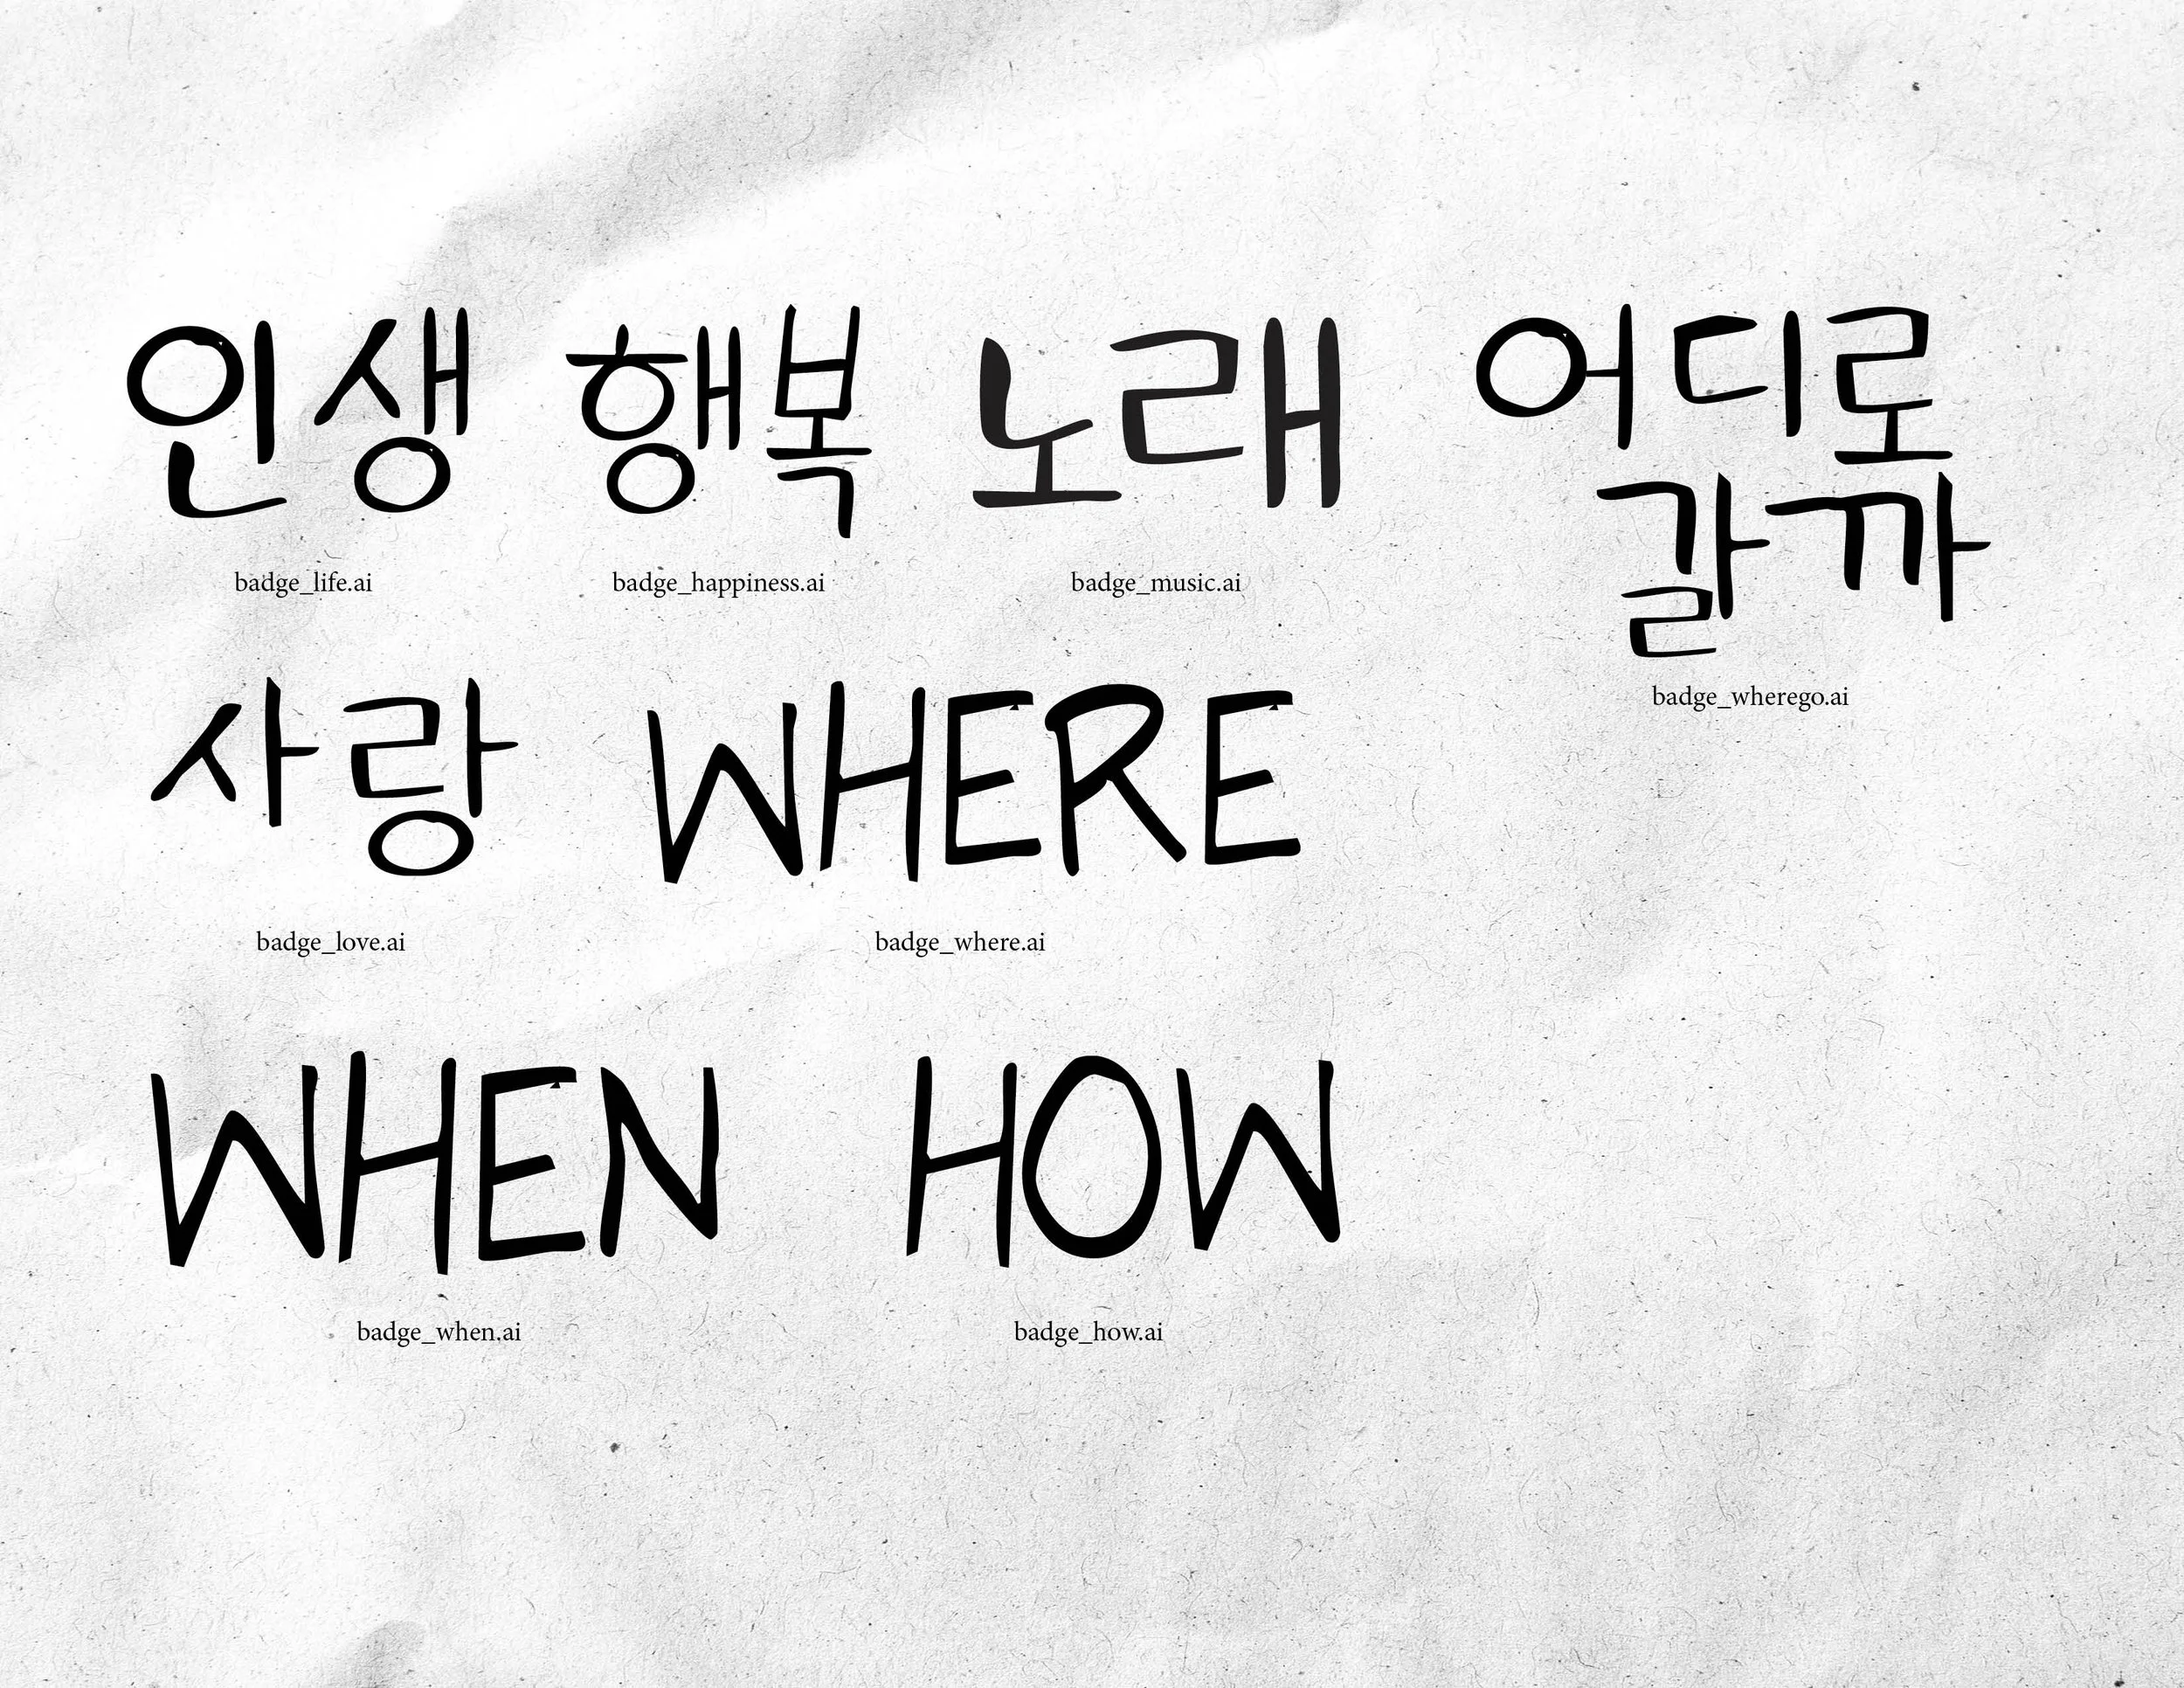 인생 행복 노래 어디로
갈까
badge_life.ai badge_happiness.ai badge_music.ai
badge_wherego.ai
사랑 WHERE
badge_love.ai badge_where.ai
WHEN HOW
badge_when.ai badge_how.ai